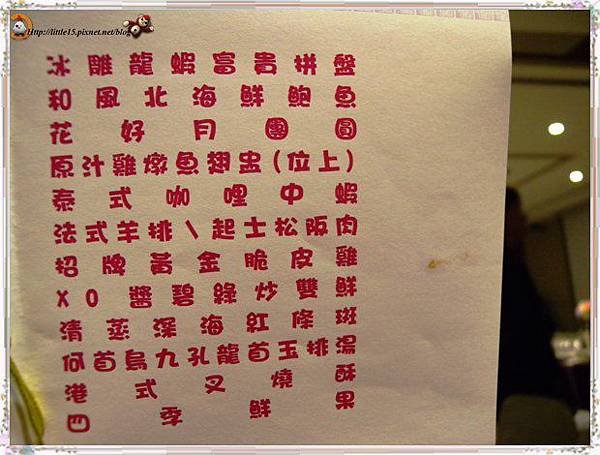 Http://little15.pixnet.net/blog
冰雕龍蝦富貴拼盤
和風北海鮮鮑魚
花好月團圓
原汁雞燉魚翅盅(位上)
泰式咖哩中蝦
法式羊排\起士松阪肉
招牌黃金脆皮雞
XO醬碧綠炒雙鮮
清蒸深海紅條斑
何首烏九孔龍首玉排湯
港式叉燒酥
四季鮮果